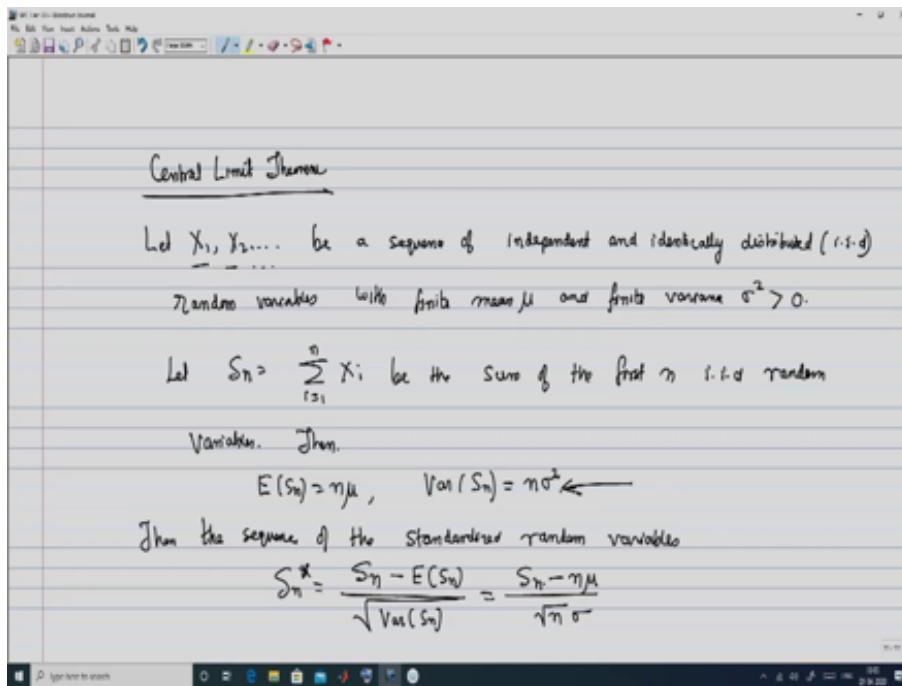 File Edit View Insert Actions Tools Help
Central Limit Theorem
Let X₁, X₂.... be a sequence of independent and identically distributed (i.i.d)
random variables with finite mean μ and finite variance σ² > 0.
Let Sn = Σ_{i=1}^{n} Xi be the sum of the first n i.i.d random
variables. Then.
E(Sn) = nμ, Var(Sn) = nσ² ←
Then the sequence of the standardized random variables
Sn* = (Sn − E(Sn)) / √Var(Sn) = (Sn − nμ) / (√n σ)
Type here to search